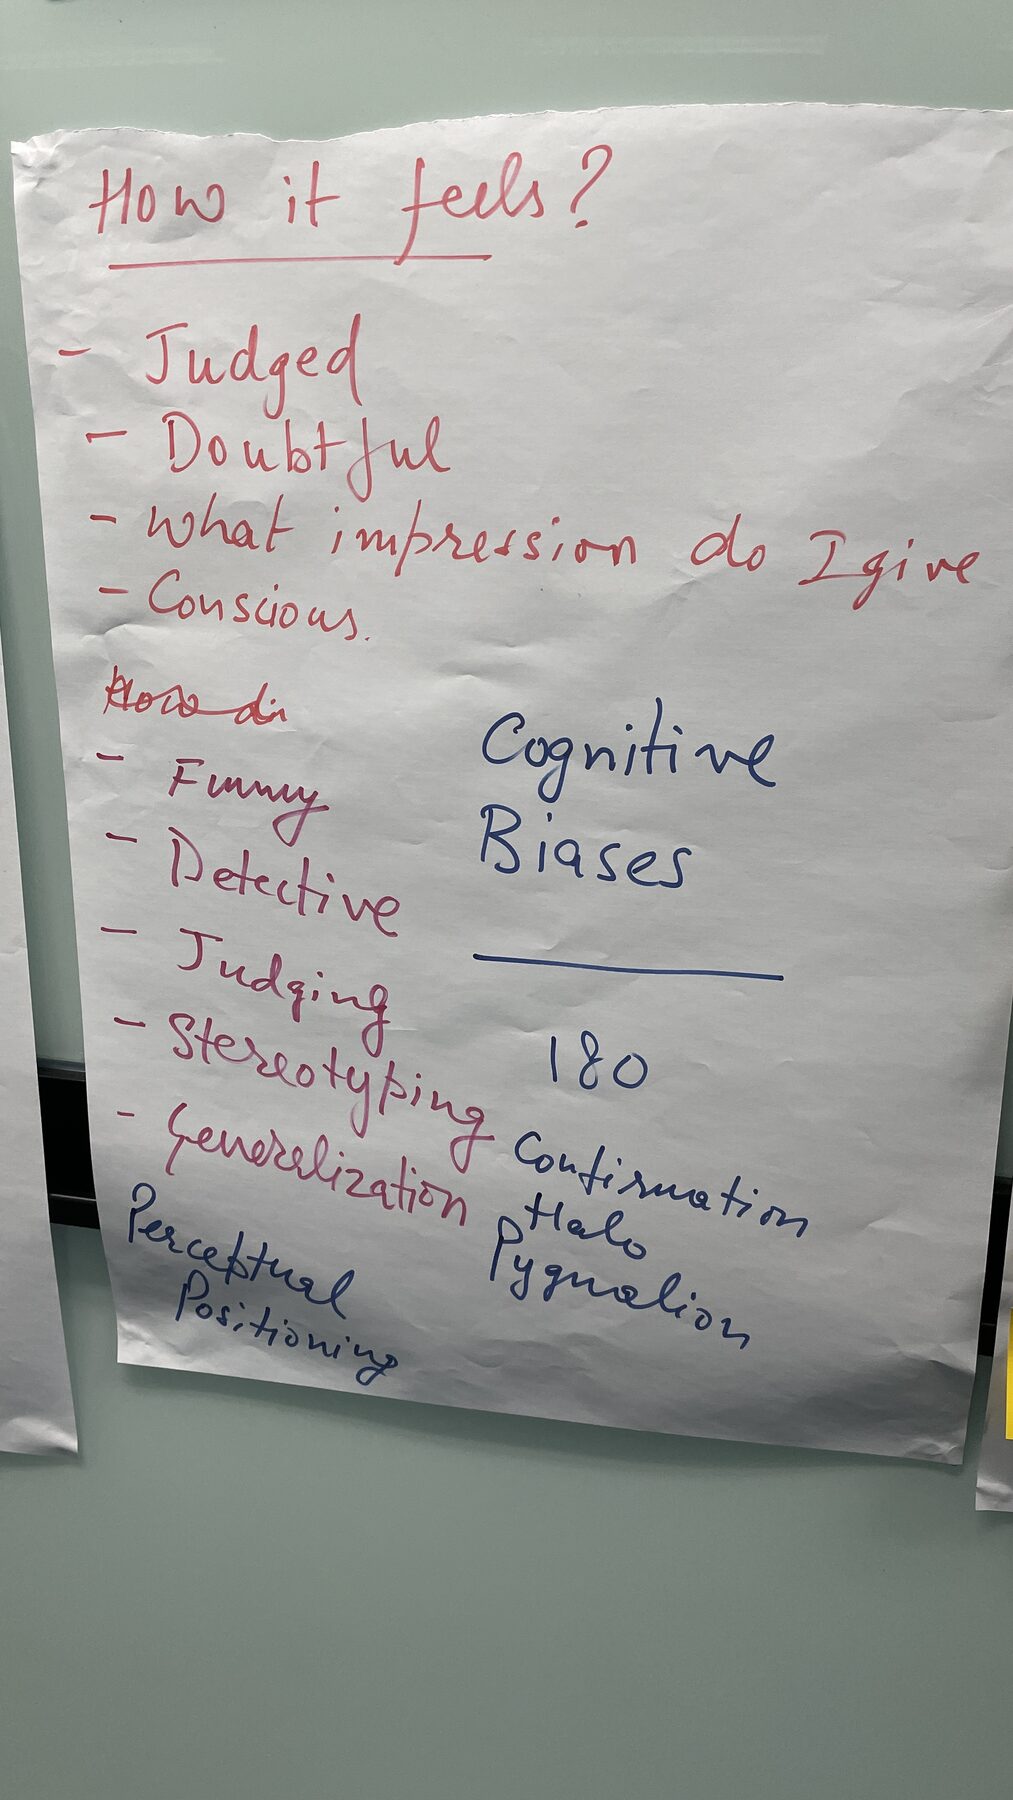 How it feels?
- Judged
- Doubtful
- What impression do I give
- Conscious.
How di
- Funny
- Detective
- Judging
- Stereotyping
- Generalization
Perceptual
Positioning
Cognitive
Biases
180
Confirmation
Halo
Pygmalion